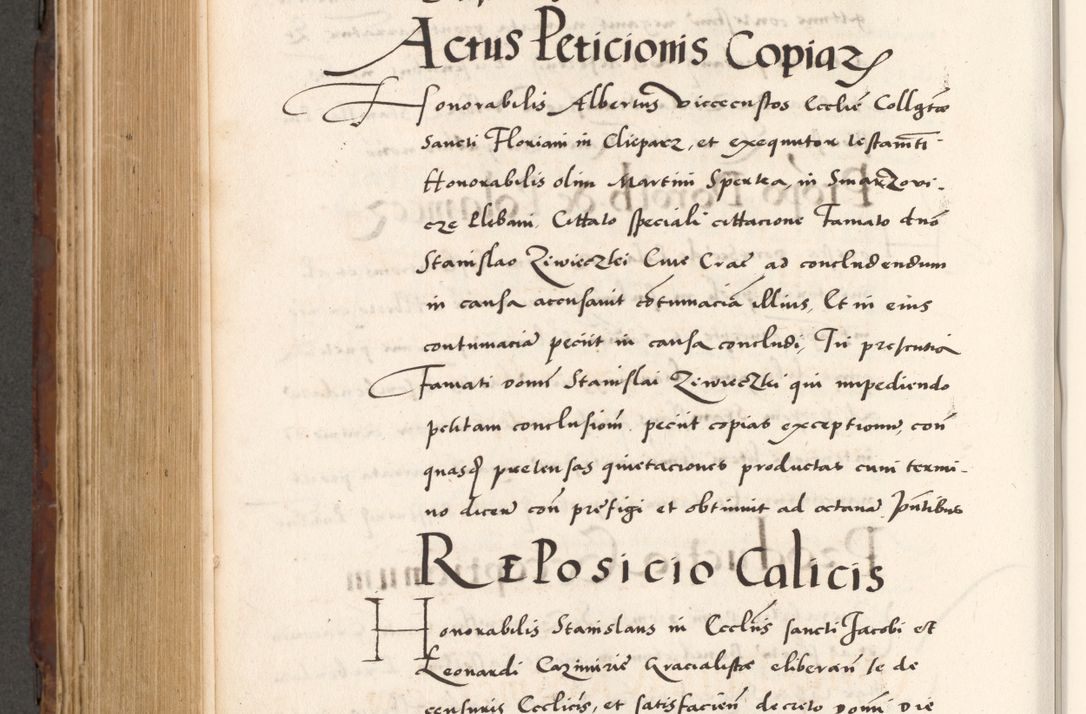 Actus Peticionis Copiaꝝ
Honorabilis Albertus vicecustos Ecclie Collgte
Sancti Floriani in Clieparz, et exequutor testamti
Honorabilis olim Martini Sperka, in Smarzovi-
cze Plebani, Cittato speciali cittacione Famato dno
Stanislao Zewieczki Cive Crac ad concludendum
in causa accusavit cotumacia illius, Et in eius
contumacia peciit in causa concludi, In presentia
Famati domi Stanislai Zewieczki qui impediendo
petitam conclusiom peciit copias exceptionu, con
quasd pretensas quietaciones productas cum termi-
no dicen con prefigi et obtinuit ad octava, Pntibus
Reposicio Calicis
Honorabilis Stanislaus in Ecclijs sancti Jacobi et
Leonardi Cazimirie Gracialista eliberan se de
censuris Ecclicis, et satisfacien decreto domi die